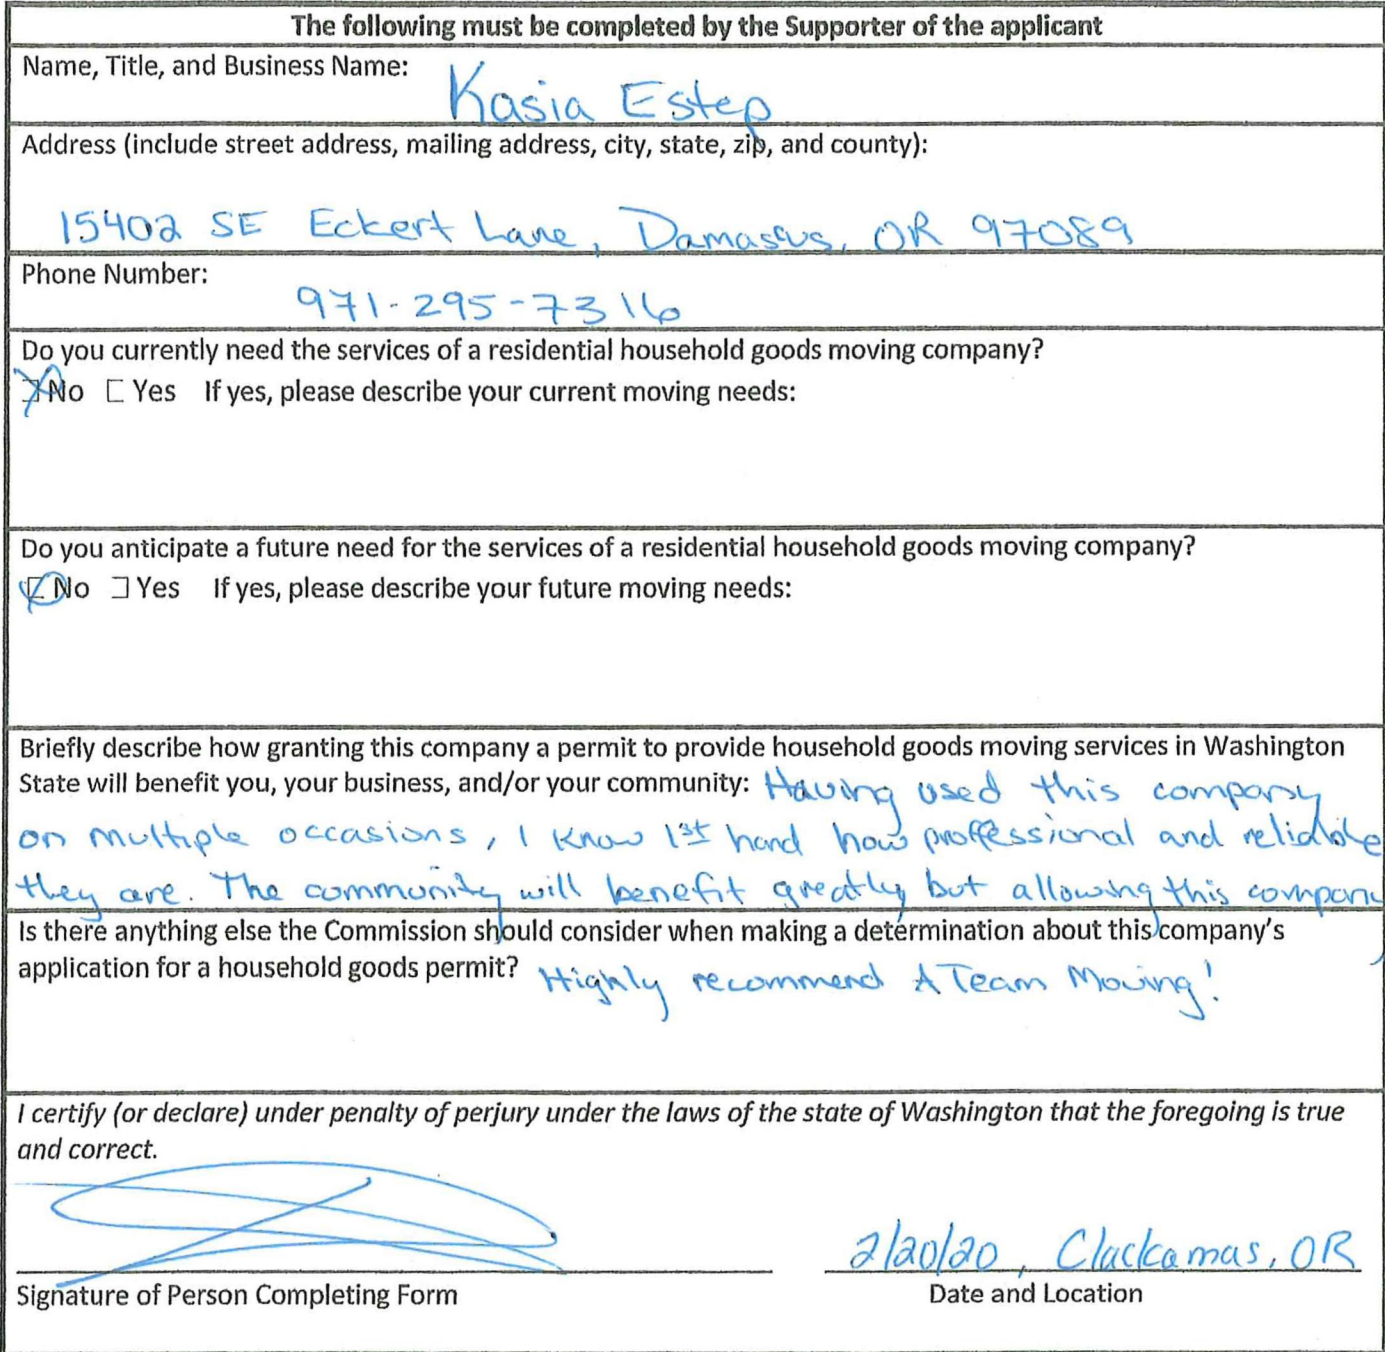 The following must be completed by the Supporter of the applicant
Name, Title, and Business Name:
Kasia Estep
Address (include street address, mailing address, city, state, zip, and county):
15402 SE Eckert Lane, Damascus, OR 97089
Phone Number:
971-295-7316
Do you currently need the services of a residential household goods moving company?
No Yes If yes, please describe your current moving needs:
Do you anticipate a future need for the services of a residential household goods moving company?
No Yes If yes, please describe your future moving needs:
Briefly describe how granting this company a permit to provide household goods moving services in Washington
State will benefit you, your business, and/or your community: Having used this company
on multiple occasions, I know 1st hand how proffessional and reliable
they are. The community will benefit greatly but allowing this company
Is there anything else the Commission should consider when making a determination about this company's
application for a household goods permit? Highly recommend A Team Moving!
I certify (or declare) under penalty of perjury under the laws of the state of Washington that the foregoing is true
and correct.
2/20/20, Clackamas, OR
Signature of Person Completing Form Date and Location